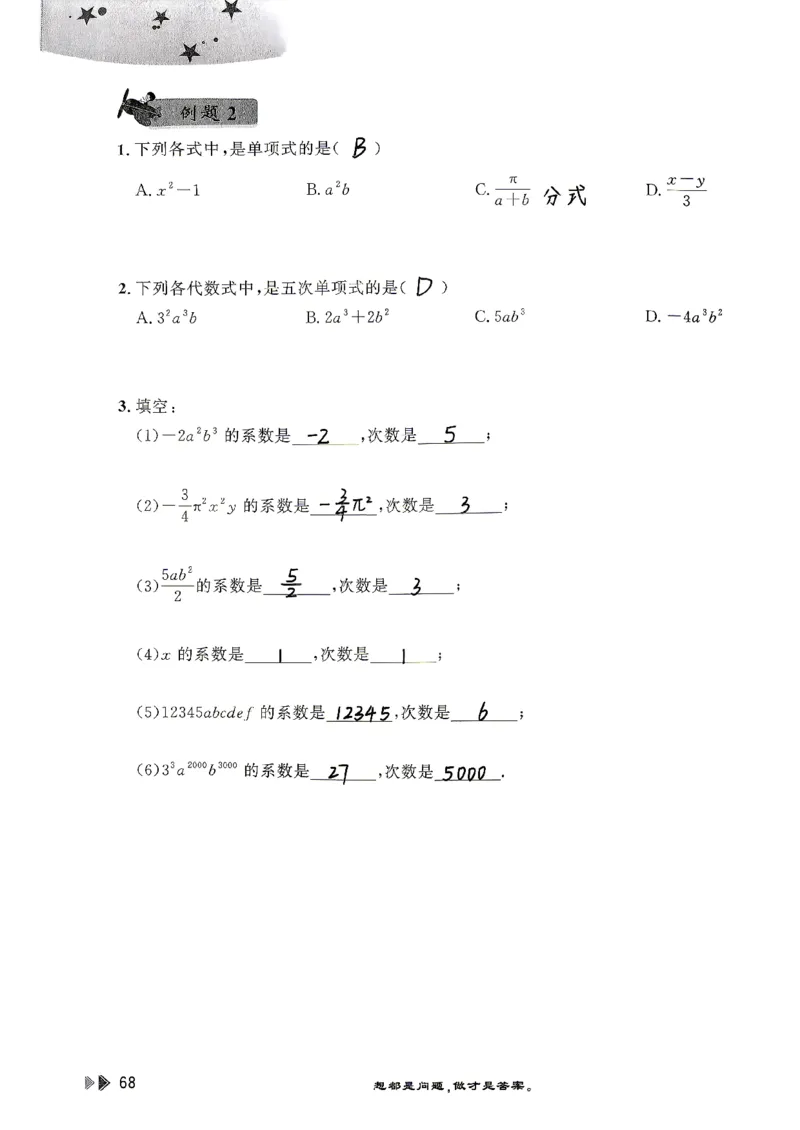 例题 2
1. 下列各式中,是单项式的是( B )
A. x²－1 B. a²b C. π/(a＋b) 分式 D. (x－y)/3
2. 下列各代数式中,是五次单项式的是( D )
A. 3²a³b B. 2a³＋2b² C. 5ab³ D. －4a³b²
3. 填空:
(1)－2a²b³ 的系数是 -2 ,次数是 5 ;
(2)－3/4π²x²y 的系数是 -3/4π² ,次数是 3 ;
(3)5ab²/2的系数是 5/2 ,次数是 3 ;
(4)x 的系数是 1 ,次数是 1 ;
(5)12345abcdef 的系数是 12345 ,次数是 6 ;
(6)3³a²⁰⁰⁰b³⁰⁰⁰ 的系数是 27 ,次数是 5000 .
68 想都是问题,做才是答案。